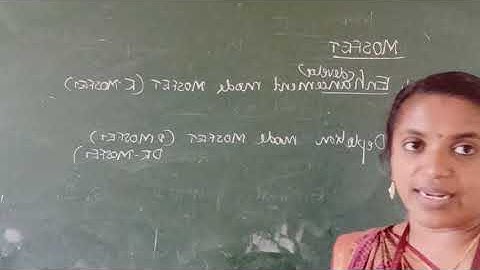 MOSFET
(develop)
Enhancement mode MOSFET (E-MOSFET)
Depletion mode MOSFET (D MOSFET)
DE-MOSFET)